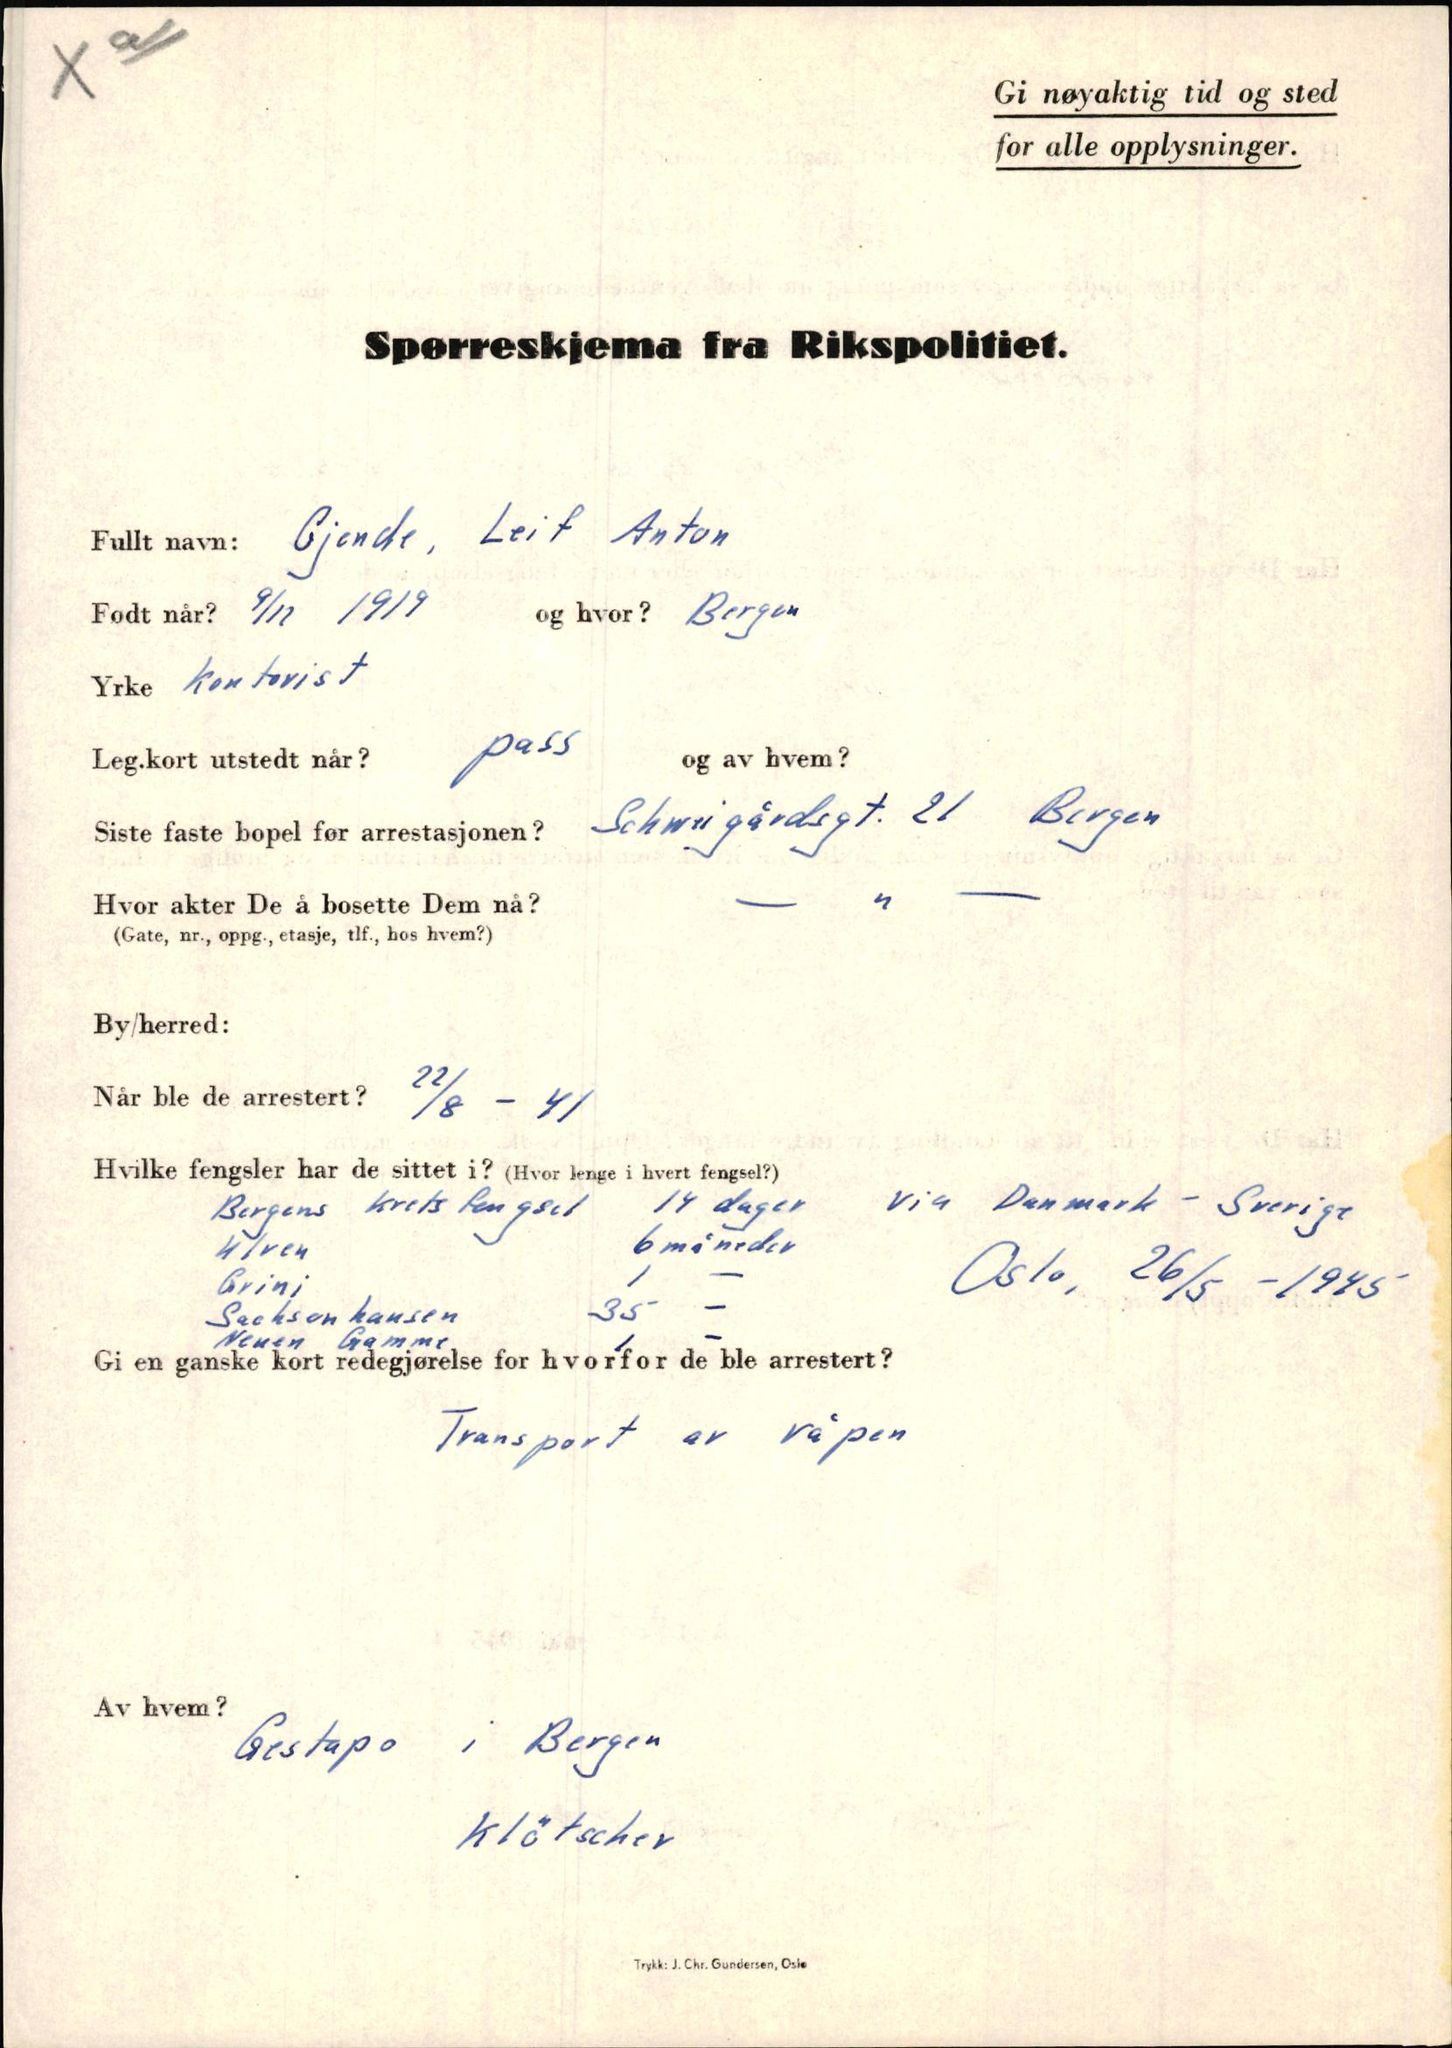 X a/
Gi nøyaktig tid og sted
for alle opplysninger.
Spørreskjema fra Rikspolitiet.
Fullt navn: Gjende, Leif Anton
Født når? 9/12 1919 og hvor? Bergen
Yrke Kontorist
Leg.kort utstedt når? pass og av hvem?
Siste faste bopel før arrestasjonen? Schweigårdsgt. 21 Bergen
Hvor akter De å bosette Dem nå? — " —
(Gate, nr., oppg., etasje, tlf., hos hvem?)
By/herred:
Når ble de arrestert? 22/8 - 41
Hvilke fengsler har de sittet i? (Hvor lenge i hvert fengsel?)
Bergens Kretsfengsel 14 dager via Danmark - Sverige
Ulven 6 måneder
Grini 1 — Oslo, 26/5 - 1945
Sachsenhausen 35 —
Neuen Gamme 1 —
Gi en ganske kort redegjørelse for hvorfor de ble arrestert?
Transport av våpen
Av hvem?
Gestapo i Bergen
Klötscher
Trykk: J. Chr. Gundersen, Oslo